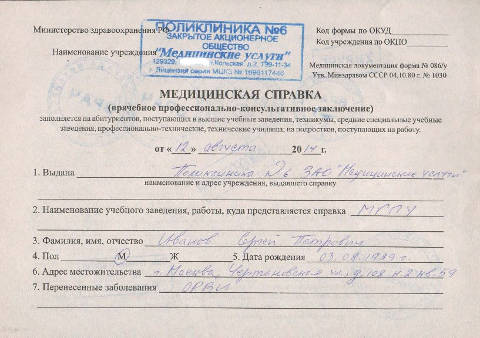 Министерство здравоохранения РФ
Наименование учреждения
ПОЛИКЛИНИКА №6
ЗАКРЫТОЕ АКЦИОНЕРНОЕ
ОБЩЕСТВО
"Медицинские услуги"
129329, Кольская д.2, 799-11-34
Лицензия серия МШКС № 1696117446
Код формы по ОКУД
Код учреждения по ОКПО
Медицинская документация форма № 086/у
Утв. Минздравом СССР 04.10.80 г. № 1030
МЕДИЦИНСКАЯ СПРАВКА
(врачебное профессионально-консультативное заключение)
заполняется на абитуриентов, поступающих в высшие учебные заведения, техникумы, средние специальные учебные
заведения, профессионально-технические, технические училища, на подростков, поступающих на работу.
от « 12 » августа 2014 г.
1. Выдана Поликлиника №6 ЗАО "Медицинские услуги"
наименование и адрес учреждения, выдавшего справку
2. Наименование учебного заведения, работы, куда представляется справка МГПУ
3. Фамилия, имя, отчество Иванов Сергей Петрович
4. Пол М Ж 5. Дата рождения 03.08.1989 г.
6. Адрес местожительства г. Москва Чертановская ул. д.108 к.2 кв.59
7. Перенесенные заболевания ОРВИ